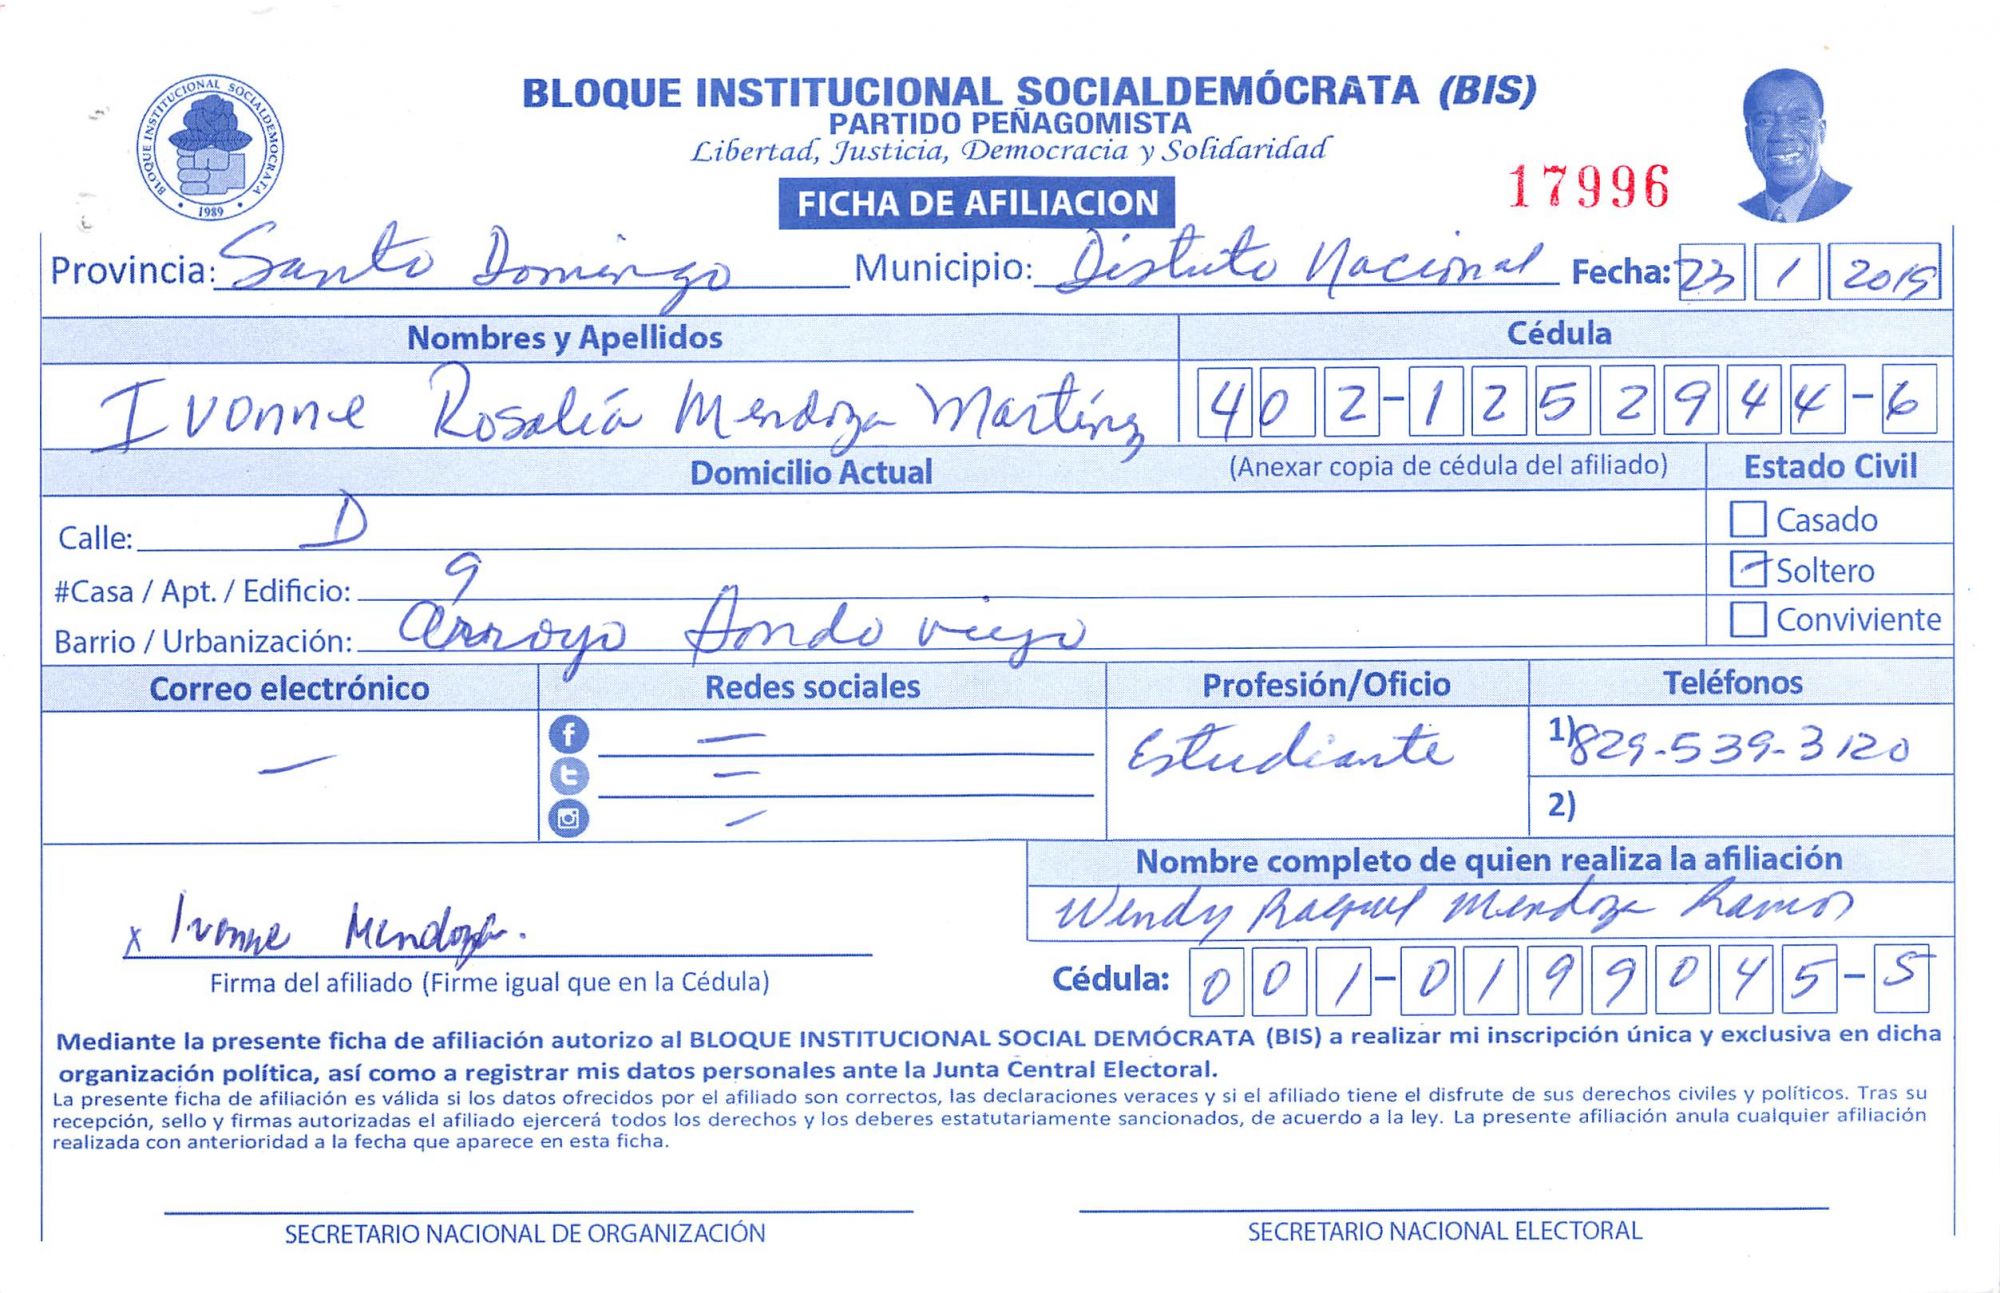 BLOQUE INSTITUCIONAL SOCIALDEMOCRATA
1989
BLOQUE INSTITUCIONAL SOCIALDEMÓCRATA (BIS)
PARTIDO PEÑAGOMISTA
Libertad, Justicia, Democracia y Solidaridad
FICHA DE AFILIACION
17996
Provincia: Santo Domingo Municipio: Distrito Nacional Fecha: 23 1 2019
Nombres y Apellidos Cédula
Ivonne Rosalía Mendoza Martínez 402-1252944-6
Domicilio Actual (Anexar copia de cédula del afiliado) Estado Civil
Calle: D Casado
#Casa / Apt. / Edificio: 9 Soltero
Barrio / Urbanización: Arroyo Hondo viejo Conviviente
Correo electrónico Redes sociales Profesión/Oficio Teléfonos
— — Estudiante 1) 829-539-3120
—
— 2)
Nombre completo de quien realiza la afiliación
Wendy Raquel Mendoza Ramos
x Ivonne Mendoza.
Firma del afiliado (Firme igual que en la Cédula) Cédula: 001-0199045-5
Mediante la presente ficha de afiliación autorizo al BLOQUE INSTITUCIONAL SOCIAL DEMÓCRATA (BIS) a realizar mi inscripción única y exclusiva en dicha
organización política, así como a registrar mis datos personales ante la Junta Central Electoral.
La presente ficha de afiliación es válida si los datos ofrecidos por el afiliado son correctos, las declaraciones veraces y si el afiliado tiene el disfrute de sus derechos civiles y políticos. Tras su
recepción, sello y firmas autorizadas el afiliado ejercerá todos los derechos y los deberes estatutariamente sancionados, de acuerdo a la ley. La presente afiliación anula cualquier afiliación
realizada con anterioridad a la fecha que aparece en esta ficha.
SECRETARIO NACIONAL DE ORGANIZACIÓN SECRETARIO NACIONAL ELECTORAL